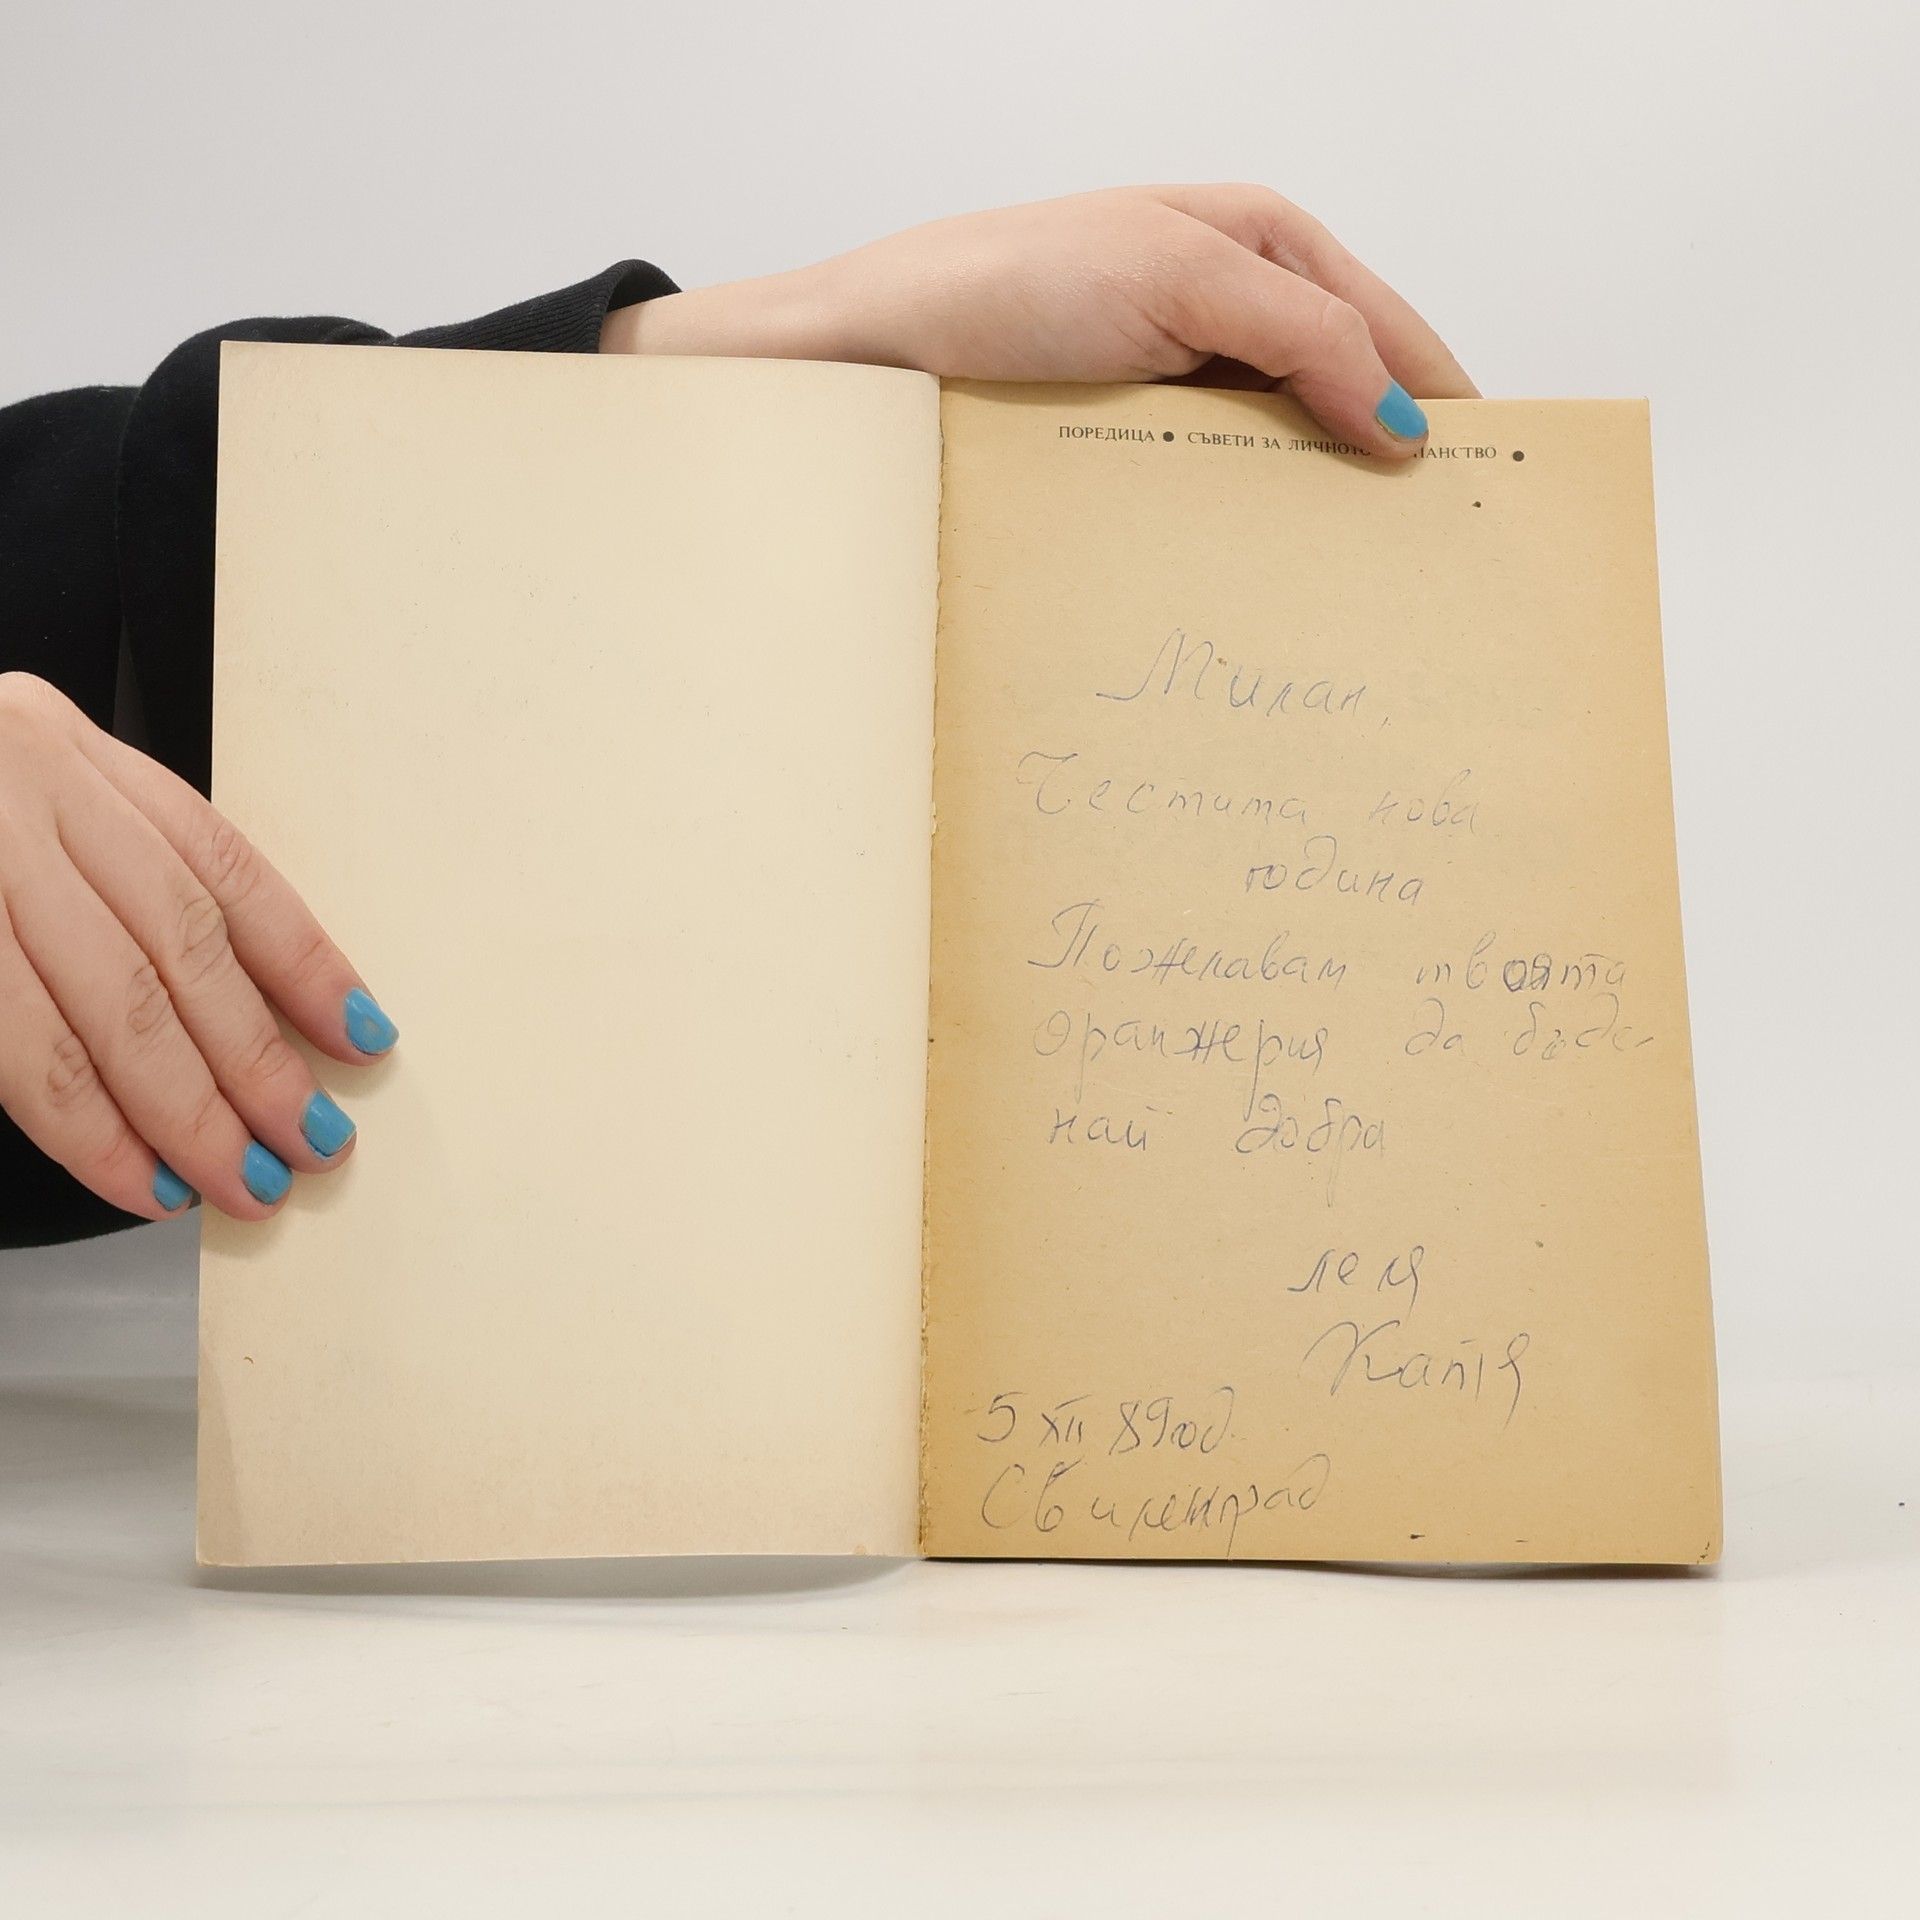 ПОРЕДИЦА ● СЪВЕТИ ЗА ЛИЧНОТО ПАНСТВО ●
Милан,
Честита нова
година
Пожелавам твоята
оранжерия да бъде
най добра
леля
Катя
5 XII 89 год.
Свиленград